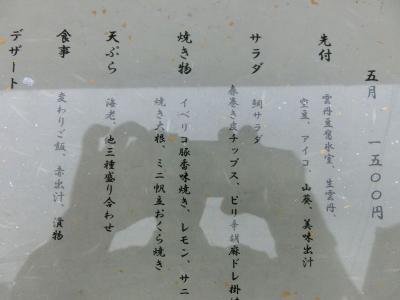 五月 一五〇〇円
先付
雲丹豆腐氷室、生雲丹、
空豆、アイコ、山葵、美味出汁
サラダ
鯛サラダ
春巻き皮チップス、ピリ辛胡麻ドレ掛け
焼き物
イベリコ豚香味焼き、レモン、サニ
焼き大根、ミニ帆立おくら焼き
天ぷら
海老、他三種盛り合わせ
食事
変わりご飯、赤出汁、漬物
デザート